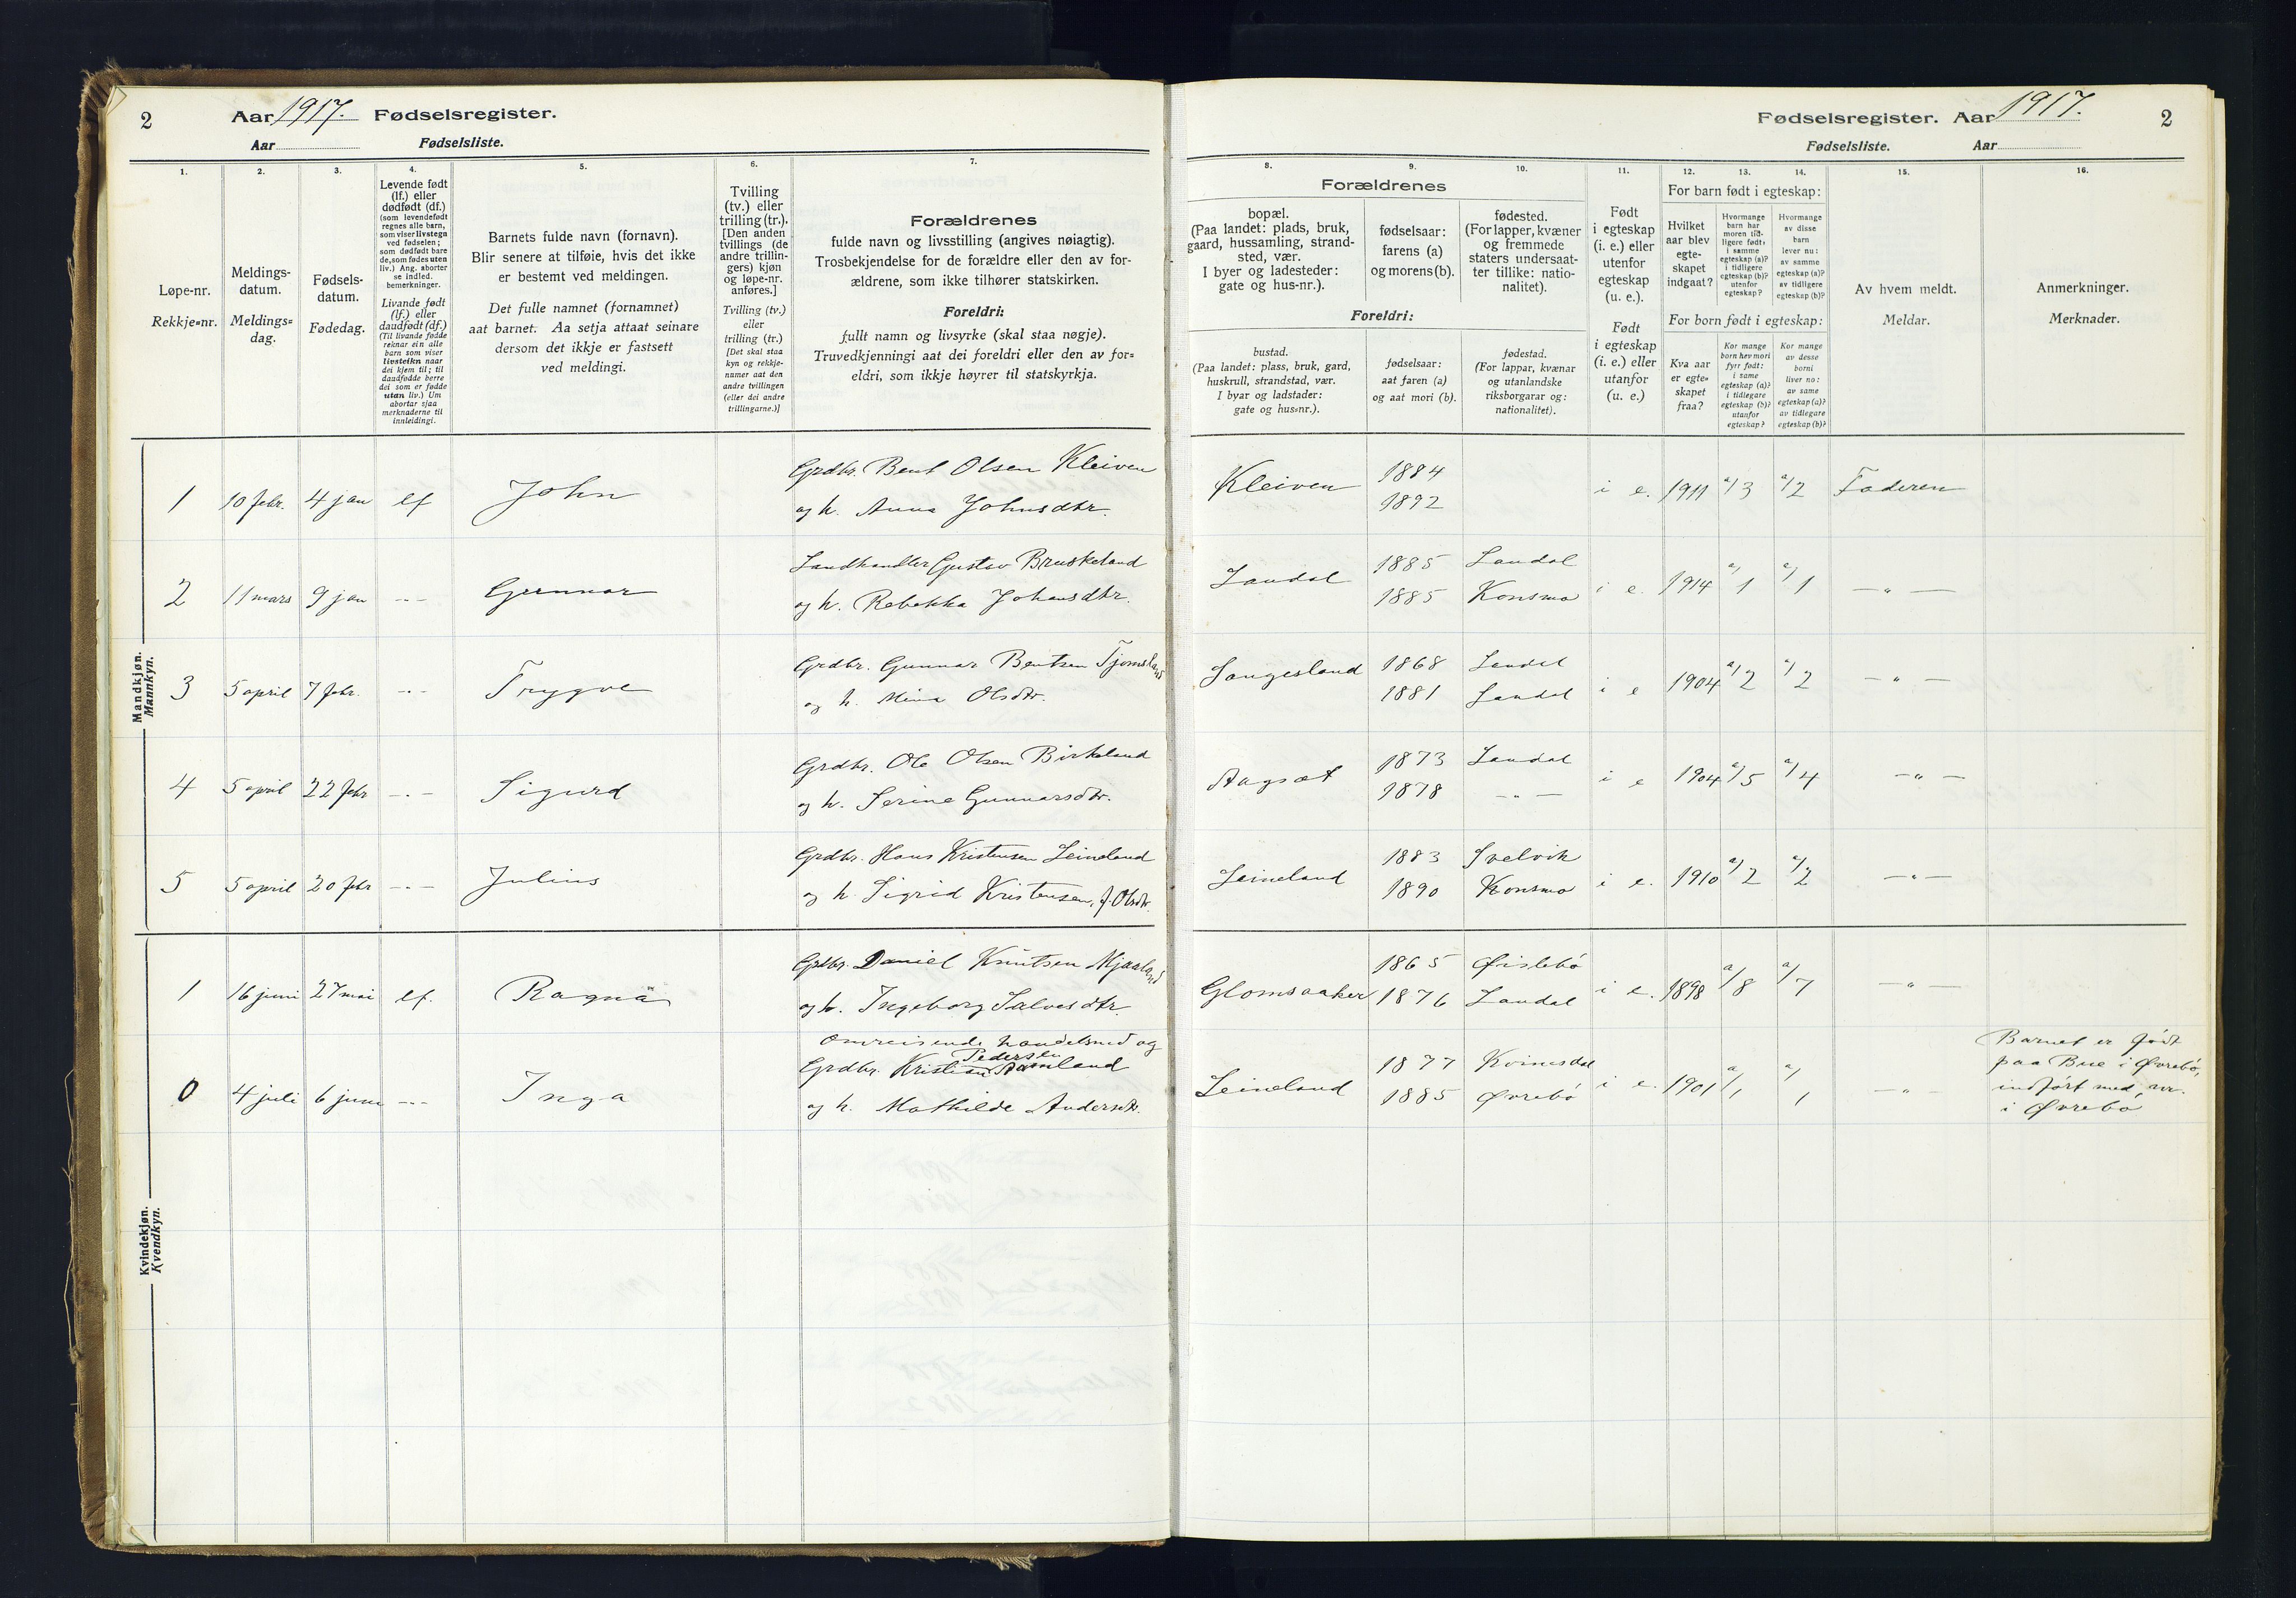 2 Aar 1917. Fødselsregister.
Aar Fødselsliste.
1.
Løpe-nr.
Rekkje=nr.
2.
Meldings-
datum.
Meldings=
dag.
3.
Fødsels-
datum.
Fødedag.
4.
Levende født
(lf.) eller
dødfødt (df.)
(som levendefødt
regnes alle barn,
som viser livstegn
ved fødselen;
som dødfødt bare
de, som fødes uten
liv.) Ang. aborter
se indled.
bemerkninger.
Livande født
(lf.) eller
daudfødt (df.)
(Til livande fødde
reknar ein alle
barn som viser
livsteikn naar
dei kjem til; til
daudfødde berre
dei som er fødde
utan liv.) Um
abortar sjaa
merknaderne til
innleidingi.
5.
Barnets fulde navn (fornavn).
Blir senere at tilføie, hvis det ikke
er bestemt ved meldingen.
Det fulle namnet (fornamnet)
aat barnet. Aa setja attaat seinare
dersom det ikkje er fastsett
ved meldingi.
6.
Tvilling
(tv.) eller
trilling (tr.).
[Den anden
tvillings (de
andre trillin-
gers) kjøn
og løpe-nr.
anføres.]
Tvilling (tv.)
eller
trilling (tr.)
[Det skal staa
kyn og rekkje-
numer aat den
andre tvillingen
(eller dei andre
trillingarne.)]
7.
Forældrenes
fulde navn og livsstilling (angives nøiagtig).
Trosbekjendelse for de forældre eller den av for-
ældrene, som ikke tilhører statskirken.
Foreldri:
fullt namn og livsyrke (skal staa nøgje).
Truvedkjenningi aat dei foreldri eller den av for=
eldri, som ikkje høyrer til statskyrkja.
Mandkjøn.
Mannkyn.
1 10 febr. 4 jan lf John Grdbr. Bent Olsen Kleiven
og h. Anna Johnsdtr.
2 11 mars 9 jan -"- Gunnar Landhandler Gustav Bruskeland
og h. Rebekka Johansdtr.
3 5 april 7 febr. -"- Trygve Grdbr. Gunnar Bentsen Tjomsland
og h. Mina Olsdtr.
4 5 april 22 febr -"- Sigurd Grdbr. Ole Olsen Birkeland
og h. Serine Gunnarsdtr.
5 5 april 20 febr -"- Julius Grdbr. Hans Kristensen Leineland
og h. Sigrid Kristensen, f. Olsdtr.
Kvindekjøn.
Kvendkyn.
1 16 juni 27 mai lf. Ragna Grdbr. Daniel Knutsen Mjaaland
og h. Ingeborg Salvesdtr.
Omreisende handelsmd og
Pedersen
0 4 juli 6 juni -"- Inga Grdbr. Kristian Aamland
og h. Mathilde Andersdtr.
Fødselsregister. Aar 1917. 2
Fødselsliste. Aar
8.
Forældrenes
bopæl.
(Paa landet: plads, bruk,
gaard, hussamling, strand-
sted, vær.
I byer og ladesteder:
gate og hus-nr.).
Foreldri:
bustad.
(Paa landet: plass, bruk, gard,
huskrull, strandstad, vær.
I byar og ladstader:
gate og hus=nr.).
9.
fødselsaar:
farens (a)
og morens (b).
fødselsaar:
aat faren (a)
og aat mori (b).
10.
fødested.
(For lapper, kvæner
og fremmede
staters undersaat-
ter tillike: natio-
nalitet).
fødestad.
(For lappar, kvænar
og utanlandske
riksborgarar og:
nationalitet).
11.
Født
i egteskap
(i. e.) eller
utenfor
egteskap
(u. e.).
Født
i egteskap
(i. e.) eller
utanfor
(u. e.)
12. 13. 14.
For barn født i egteskap:
Hvilket
aar blev
egte-
skapet
indgaat?
Hvormange
barn har
moren tid-
ligere født:
i samme
egteskap (a)?
i tidligere
egteskap (b)?
utenfor
egteskap?
Hvormange
av disse
barn
lever nu:
av samme
egteskap (a)?
av tidligere
egteskap (b)?
For born født i egteskap:
Kva aar
er egte=
skapet
fraa?
Kor mange
born hev mori
fyrr født:
i same
egteskap (a)?
i tidlegare
egteskap (b)?
utanfor
egteskap?
Kor mange
av desse
borni
liver no:
av same
egteskap (a)?
av tidlegare
egteskap (b)?
15.
Av hvem meldt.
Meldar.
16.
Anmerkninger.
Merknader.
Kleiven 1884
1892 i e. 1911 a/3 a/2 Faderen
Laudal 1885 Laudal
1885 Konsmo i e. 1914 a/1 a/1 -"-
Langesland 1868 Laudal
1881 Laudal i e 1904 a/2 a/2 -"-
Aagsæt 1873 Laudal
1878 -"- i e 1904 a/5 a/4 -"-
Leineland 1883 Svelvik
1890 Konsmo i e. 1910 a/2 a/2 -"-
Glomsaaker 1865 Øislebø
1876 Laudal i e. 1898 a/8 a/7 -"-
Leineland 1877 Kvinesdal
1885 Øvrebø i e. 1901 a/1 a/1 -"-
Barnet er født
paa Bue i Øvrebø,
indført med nr.
i Øvrebø